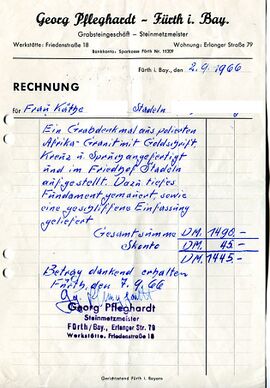 Georg Pfleghardt - Fürth i. Bay.
Grabsteingeschäft - Steinmetzmeister
Werkstätte: Friedenstraße 18 Wohnung: Erlanger Straße 79
Bankkonto: Sparkasse Fürth Nr.
Fürth i. Bay., den 2.9.1966
RECHNUNG
für Frau Käthe Stadeln
Ein Grabdenkmal aus polierten
Afrika-Granit mit Goldschrift
Kreuz u. Sprung angefertigt
und im Friedhof Stadeln
aufgestellt. Dazu tiefes
Fundament gemauert, sowie
eine geschliffene Einfassung
geliefert
Gesamtsumme DM. 1490,-
Skonto DM. 45,-
DM. 1445,-
Betrag dankend erhalten
Fürth, den 7.9.66
Gg. Pfleghardt
Georg Pfleghardt
Steinmetzmeister
Fürth/Bay., Erlanger Str. 79
Werkstätte: Friedenstraße 18
Gerichtsstand Fürth i. Bayern